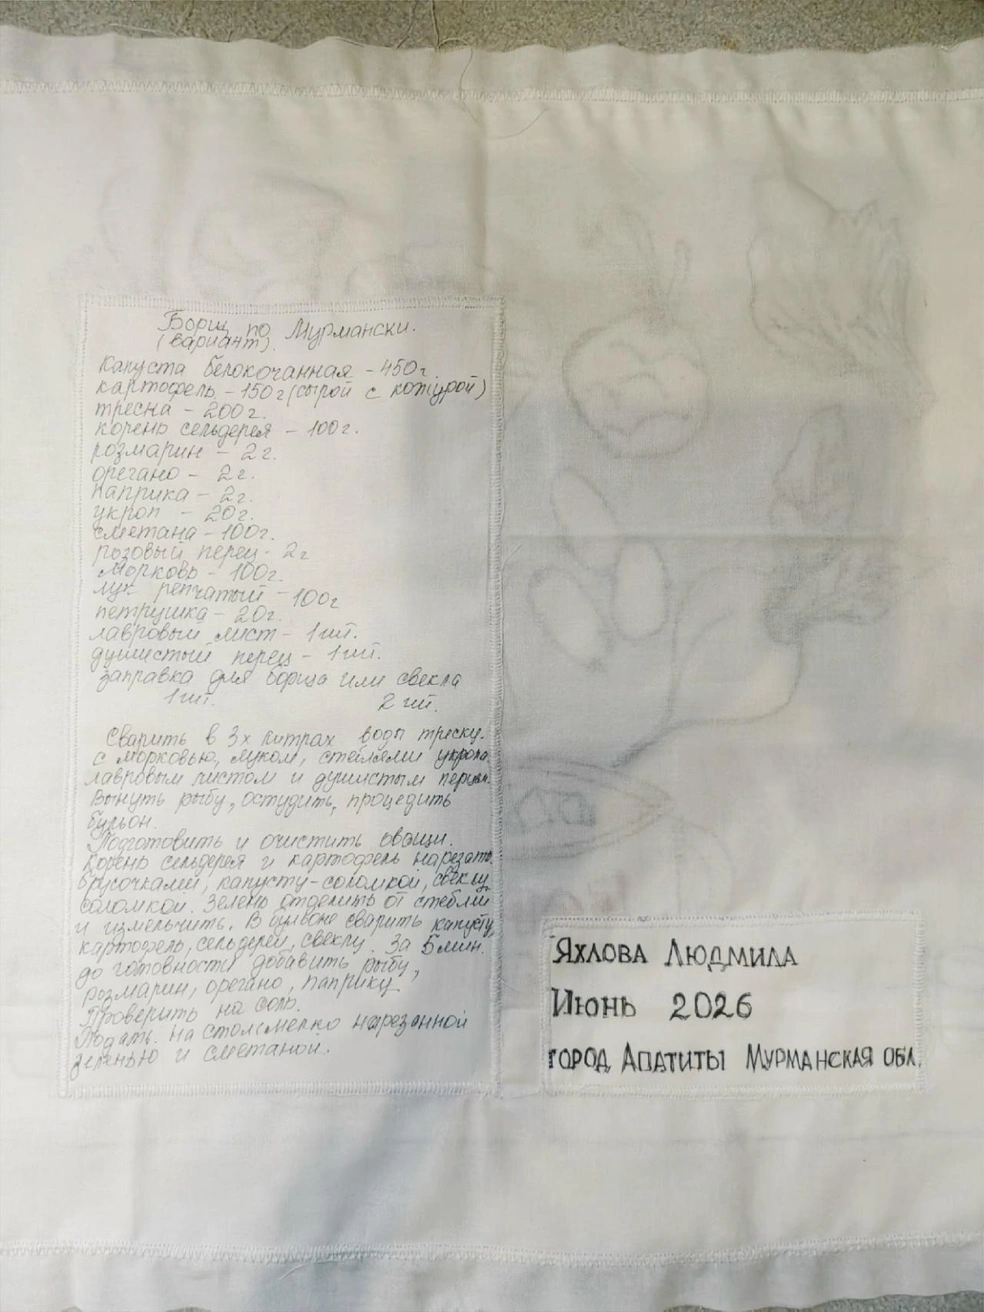 Борщ по Мурмански.
(вариант).
Капуста белокочанная - 450г.
картофель - 150г (сырой с кожурой)
треска - 200г.
корень сельдерея - 100г.
розмарин - 2г.
орегано - 2г.
паприка - 2г.
укроп - 20г.
сметана - 100г.
розовый перец - 2г
морковь - 100г.
лук репчатый - 100г
петрушка - 20г.
лавровый лист - 1шт.
душистый перец - 1шт.
заправка для борща или свекла
1шт. 2 шт.
Сварить в 3х литрах воды треску.
с морковью, луком, стеблями укропа
лавровым листом и душистым перцем.
Вынуть рыбу, остудить, процедить
бульон.
Подготовить и очистить овощи.
Корень сельдерея и картофель нарезать
брусочками, капусту-соломкой, свеклу
соломкой. Зелень отделить от стеблей
и измельчить. В бульоне сварить капусту,
картофель, сельдерей, свеклу. За 5 мин.
до готовности добавить рыбу,
розмарин, орегано, паприку.
Проверить на соль.
Подать. на стол с мелко нарезанной
зеленью и сметаной.
Яхлова Людмила
Июнь 2026
город Апатиты Мурманская обл.